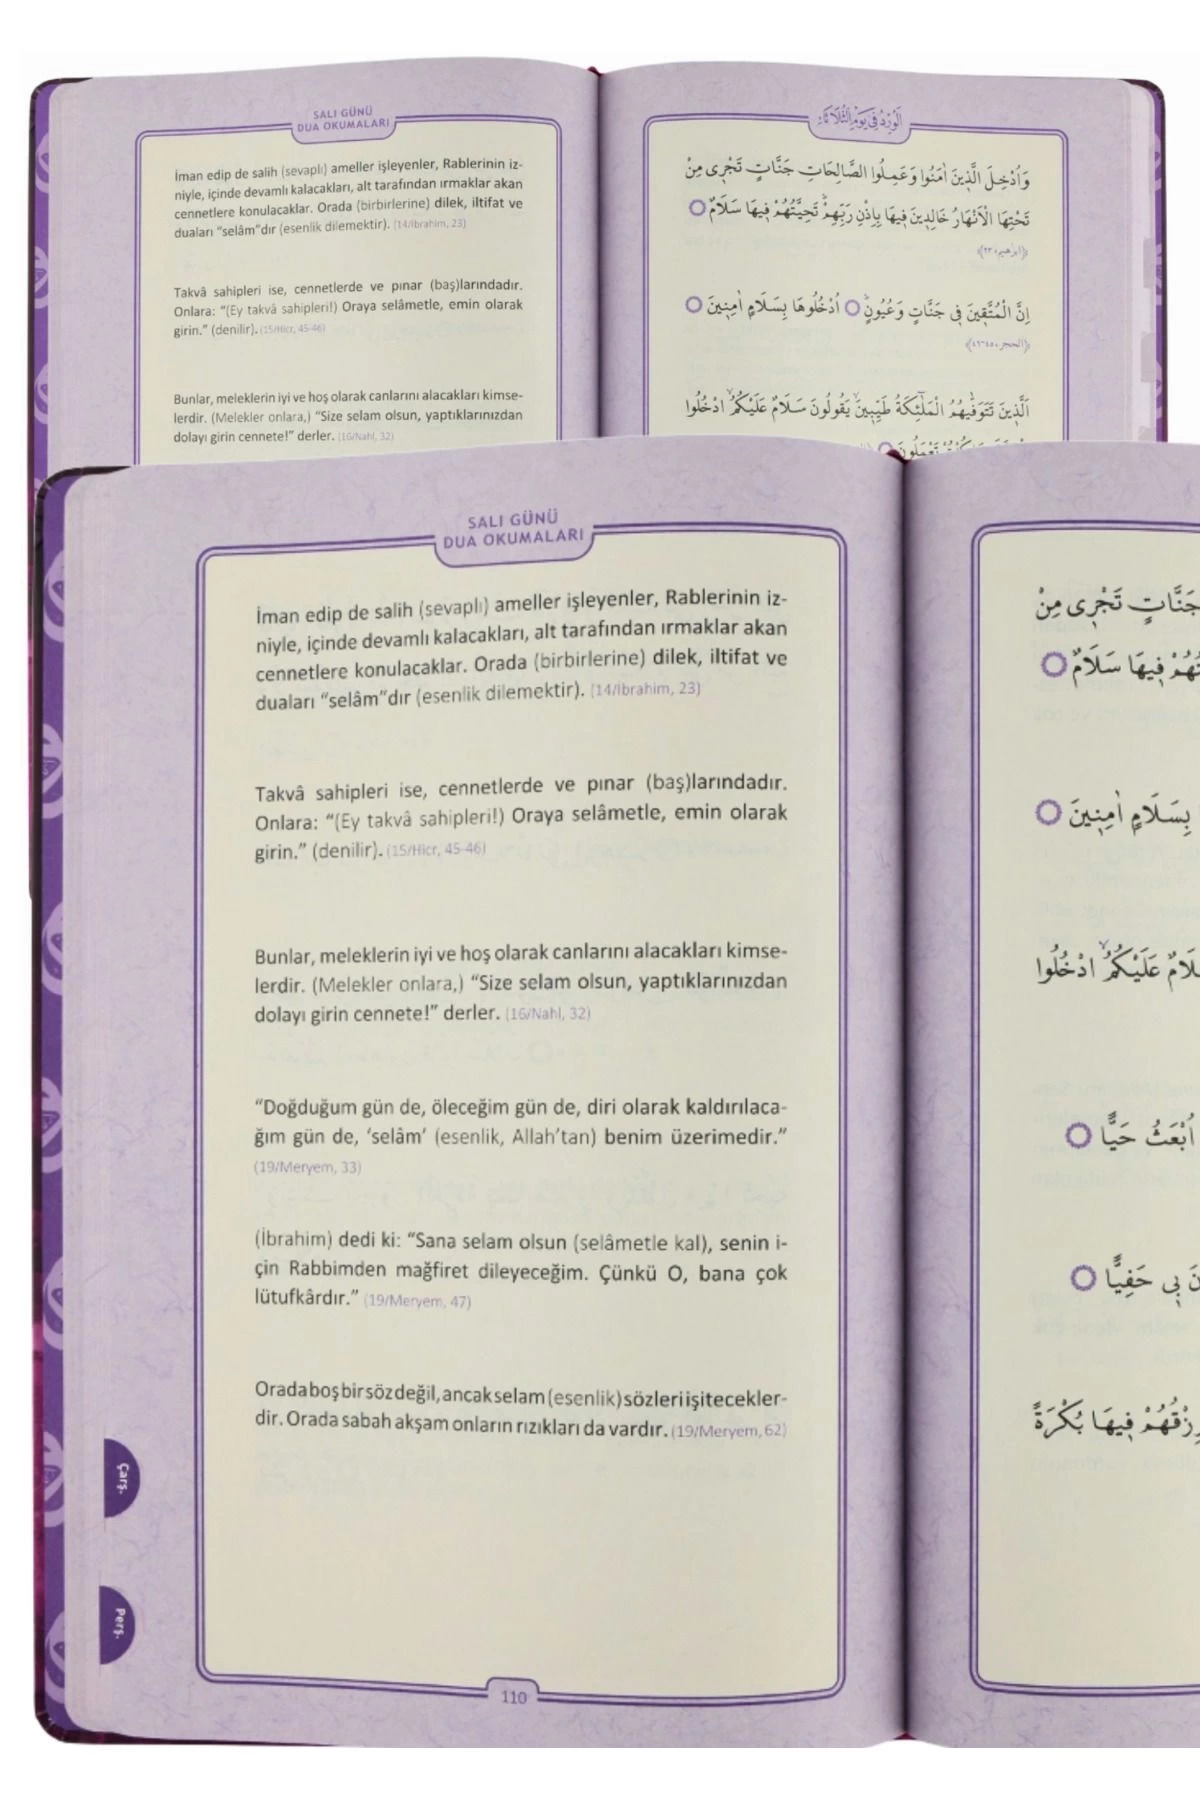 SALI GÜNÜ
DUA OKUMALARI
İman edip de salih (sevaplı) ameller işleyenler, Rablerinin iz-
niyle, içinde devamlı kalacakları, alt tarafından ırmaklar akan
cennetlere konulacaklar. Orada (birbirlerine) dilek, iltifat ve
duaları “selâm”dır (esenlik dilemektir). (14/İbrahim, 23)
Takvâ sahipleri ise, cennetlerde ve pınar (baş)larındadır.
Onlara: “(Ey takvâ sahipleri!) Oraya selâmetle, emin olarak
girin.” (denilir). (15/Hicr, 45-46)
Bunlar, meleklerin iyi ve hoş olarak canlarını alacakları kimse-
lerdir. (Melekler onlara,) “Size selam olsun, yaptıklarınızdan
dolayı girin cennete!” derler. (16/Nahl, 32)
اَلْوِرْدُ فِي يَوْمِ الثُّلَاثَاءِ
وَاُدْخِلَ الَّذ۪ينَ اٰمَنُوا وَعَمِلُوا الصَّالِحَاتِ جَنَّاتٍ تَجْر۪ي مِنْ
تَحْتِهَا الْاَنْهَارُ خَالِد۪ينَ ف۪يهَا بِاِذْنِ رَبِّهِمْۜ تَحِيَّتُهُمْ ف۪يهَا سَلَامٌ
﴿ابراهيم، ٢٣﴾
اِنَّ الْمُتَّق۪ينَ ف۪ي جَنَّاتٍ وَعُيُونٍۜ اُدْخُلُوهَا بِسَلَامٍ اٰمِن۪ينَ
﴿الحجر، ٤٥-٤٦﴾
اَلَّذ۪ينَ تَتَوَفّٰيهُمُ الْمَلٰٓئِكَةُ طَيِّب۪ينَۙ يَقُولُونَ سَلَامٌ عَلَيْكُمُۙ ادْخُلُوا
تَعْمَلُونَ
SALI GÜNÜ
DUA OKUMALARI
İman edip de salih (sevaplı) ameller işleyenler, Rablerinin iz-
niyle, içinde devamlı kalacakları, alt tarafından ırmaklar akan
cennetlere konulacaklar. Orada (birbirlerine) dilek, iltifat ve
duaları “selâm”dır (esenlik dilemektir). (14/İbrahim, 23)
Takvâ sahipleri ise, cennetlerde ve pınar (baş)larındadır.
Onlara: “(Ey takvâ sahipleri!) Oraya selâmetle, emin olarak
girin.” (denilir). (15/Hicr, 45-46)
Bunlar, meleklerin iyi ve hoş olarak canlarını alacakları kimse-
lerdir. (Melekler onlara,) “Size selam olsun, yaptıklarınızdan
dolayı girin cennete!” derler. (16/Nahl, 32)
“Doğduğum gün de, öleceğim gün de, diri olarak kaldırılaca-
ğım gün de, ‘selâm’ (esenlik, Allah’tan) benim üzerimedir.”
(19/Meryem, 33)
(İbrahim) dedi ki: “Sana selam olsun (selâmetle kal), senin i-
çin Rabbimden mağfiret dileyeceğim. Çünkü O, bana çok
lütufkârdır.” (19/Meryem, 47)
Orada boş bir söz değil, ancak selam (esenlik) sözleri işitecekler-
dir. Orada sabah akşam onların rızıkları da vardır. (19/Meryem, 62)
Çarş.
Perş.
110
جَنَّاتٍ تَجْر۪ي مِنْ
ف۪يهَا سَلَامٌ
بِسَلَامٍ اٰمِن۪ينَ
عَلَيْكُمُۙ ادْخُلُوا
اُبْعَثُ حَيًّا
ب۪ي حَفِيًّا
ف۪يهَا بُكْرَةً